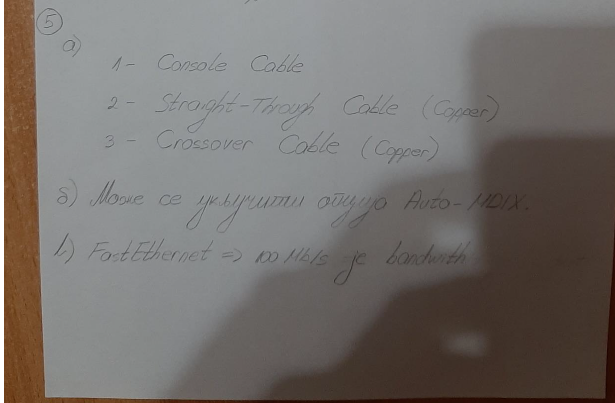 5
а)
1- Console Cable
2 - Straight-Though Cable (Copper)
3 - Crossover Cable (Copper)
б) Може се укључити опцијо Auto-MDIX.
в) FastEthernet => 100 Mb/s је bandwith